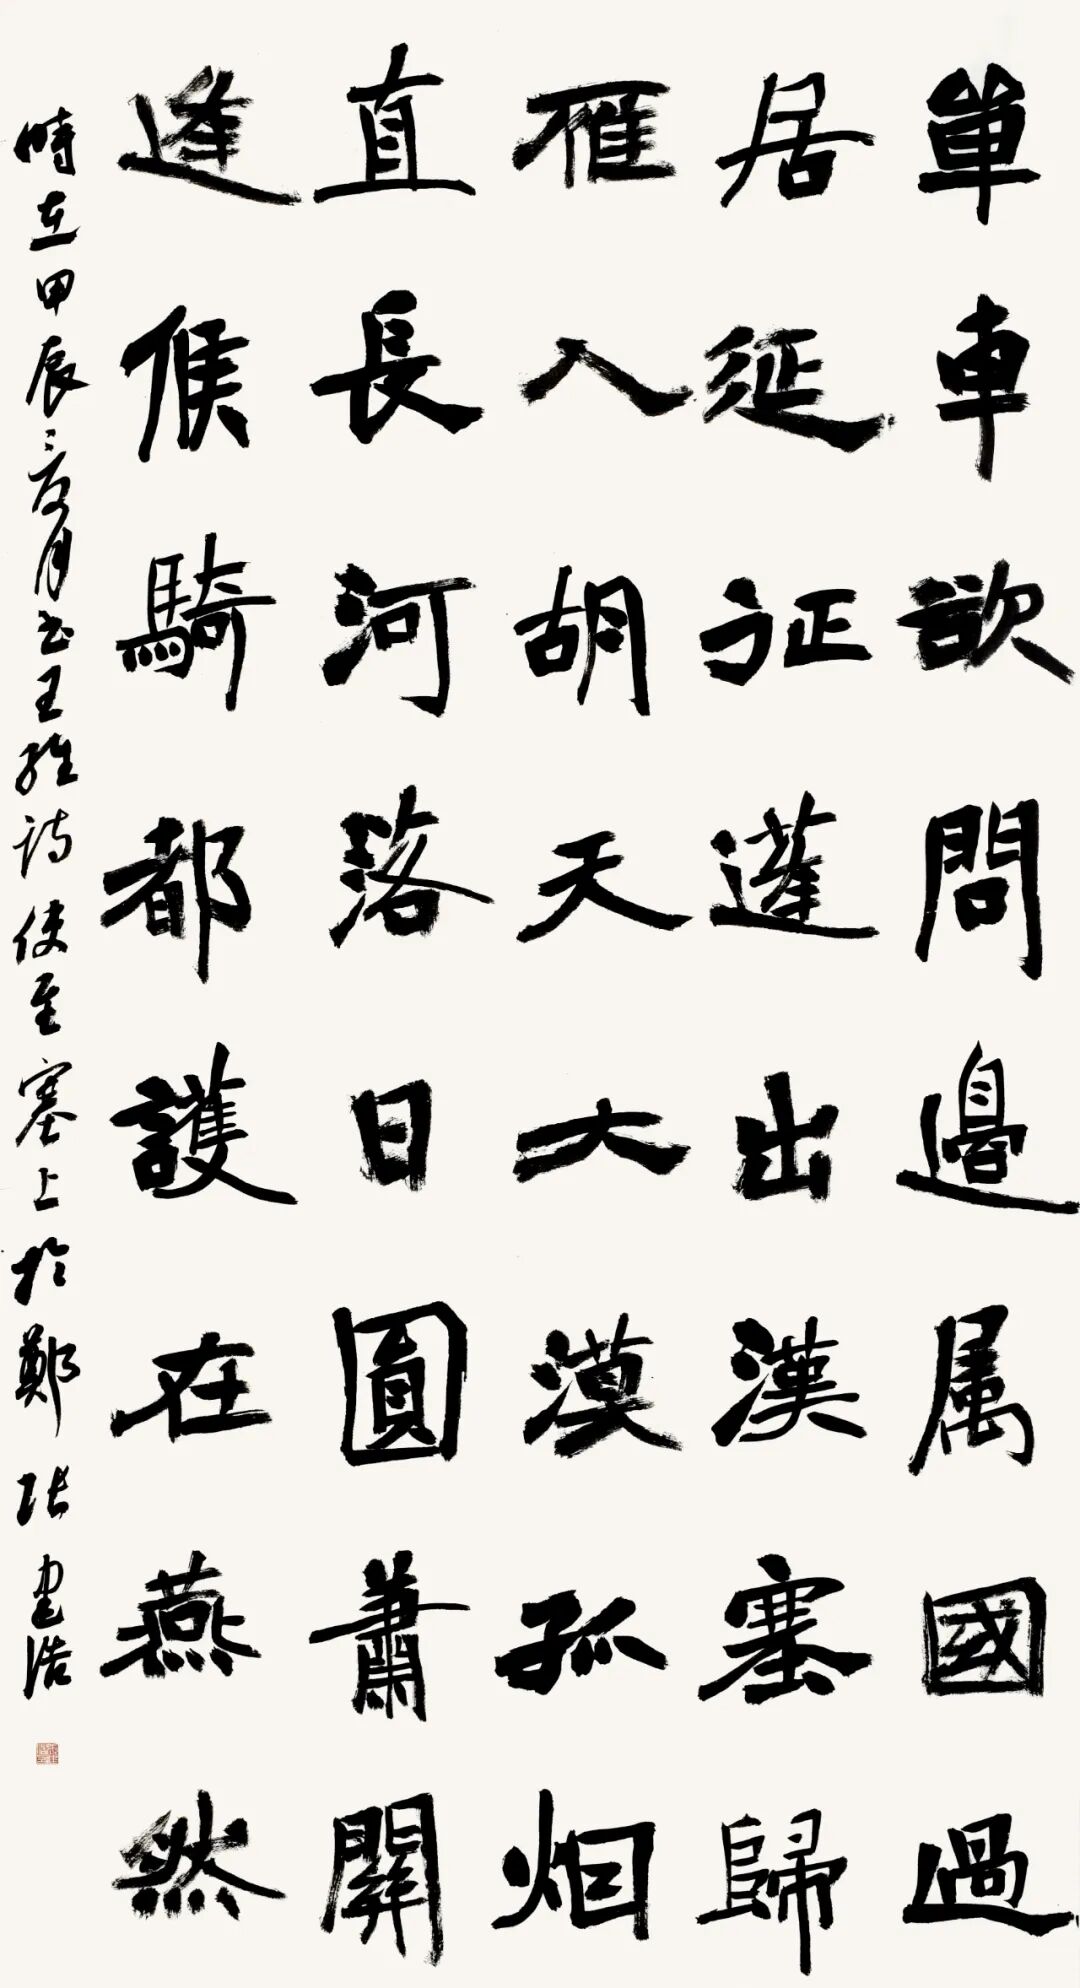 單車欲問邊属國過
居延征蓬出漢塞歸
雁入胡天大漠孤烟
直長河落日圓蕭關
逢候騎都護在燕然
時在甲辰之夏月书王維诗使至塞上於鄭張建浩